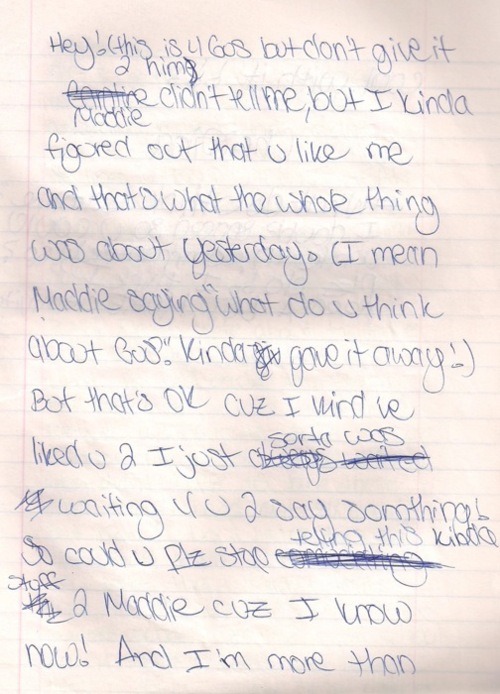 Hey! (this is 4 Gus but don't give it
2 him)
didn't tell me, but I kinda
Maddie
figured out that u like me
and that's what the whole thing
was about yesterday. (I mean
Maddie saying "what do u think
about Gus". Kinda gave it away!)
But that's OK cuz I kind ve
liked u 2 I just sorta was
waiting 4 u 2 say somthing!
So could u plz stop telling this kinda
stuff
2 Maddie cuz I know
now! And I'm more than